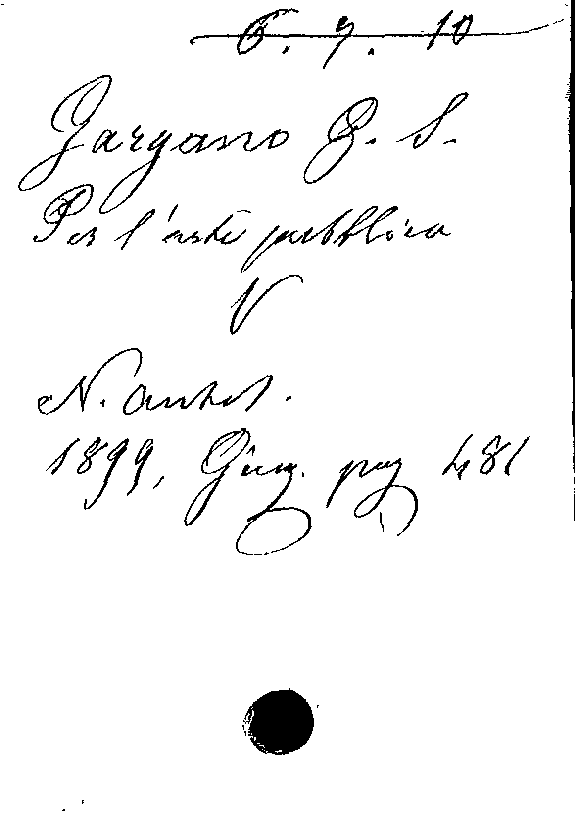 6. 9. 10
Gargano G. S.
Per l'arte pubblica
V
N. Antol.
1899, Giug. pag 481